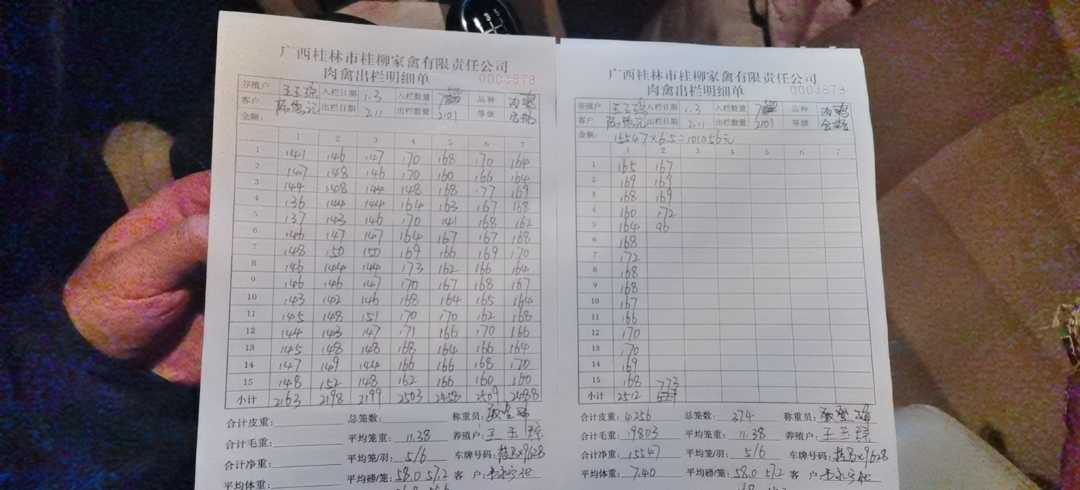 广西桂林市桂柳家禽有限责任公司
肉禽出栏明细单
养殖户 入栏日期 1.3 入栏数量 品种
客户 出栏日期 2.11 出栏数量 2101 等级
金额:
1 2 3 4 5 6 7
1 141 146 147 170 168 170 164
2 147 148 146 170 160 166 164
3 144 148 144 148 168 177 169
4 136 144 144 164 163 167 168
5 137 143 146 170 141 168 162
6 146 147 147 164 167 167 168
7 148 150 150 169 166 169 170
8 146 144 144 173 162 166 164
9 146 146 147 170 167 168 167
10 143 142 146 168 164 165 164
11 145 148 151 170 170 162 168
12 144 143 147 171 166 170 166
13 145 148 148 168 164 166 164
14 147 149 144 166 166 168 170
15 148 152 148 162 166 160 160
小计 2163 2198 2199 2503 2458 2509 2488
合计皮重: 总笼数: 称重员:
合计毛重: 平均笼重: 11.38 养殖户:
合计净重: 平均笼/羽: 5/6 车牌号码:
平均体重: 平均磅/笼: 58.0 57.2 客 户:
广西桂林市桂柳家禽有限责任公司
肉禽出栏明细单
养殖户 入栏日期 1.3 入栏数量 品种
客户 出栏日期 2.11 出栏数量 2101 等级
金额: 15547×6.5=101056元
1 2 3 4 5 6 7
1 165 167
2 169 169
3 168 169
4 160 172
5 164 96
6 168
7 172
8 168
9 168
10 167
11 166
12 170
13 170
14 169
15 168 773
小计 2512
合计皮重: 4256 总笼数: 374 称重员:
合计毛重: 19803 平均笼重: 11.38 养殖户:
合计净重: 15547 平均笼/羽: 5/6 车牌号码:
平均体重: 7.40 平均磅/笼: 58.0 57.2 客 户: